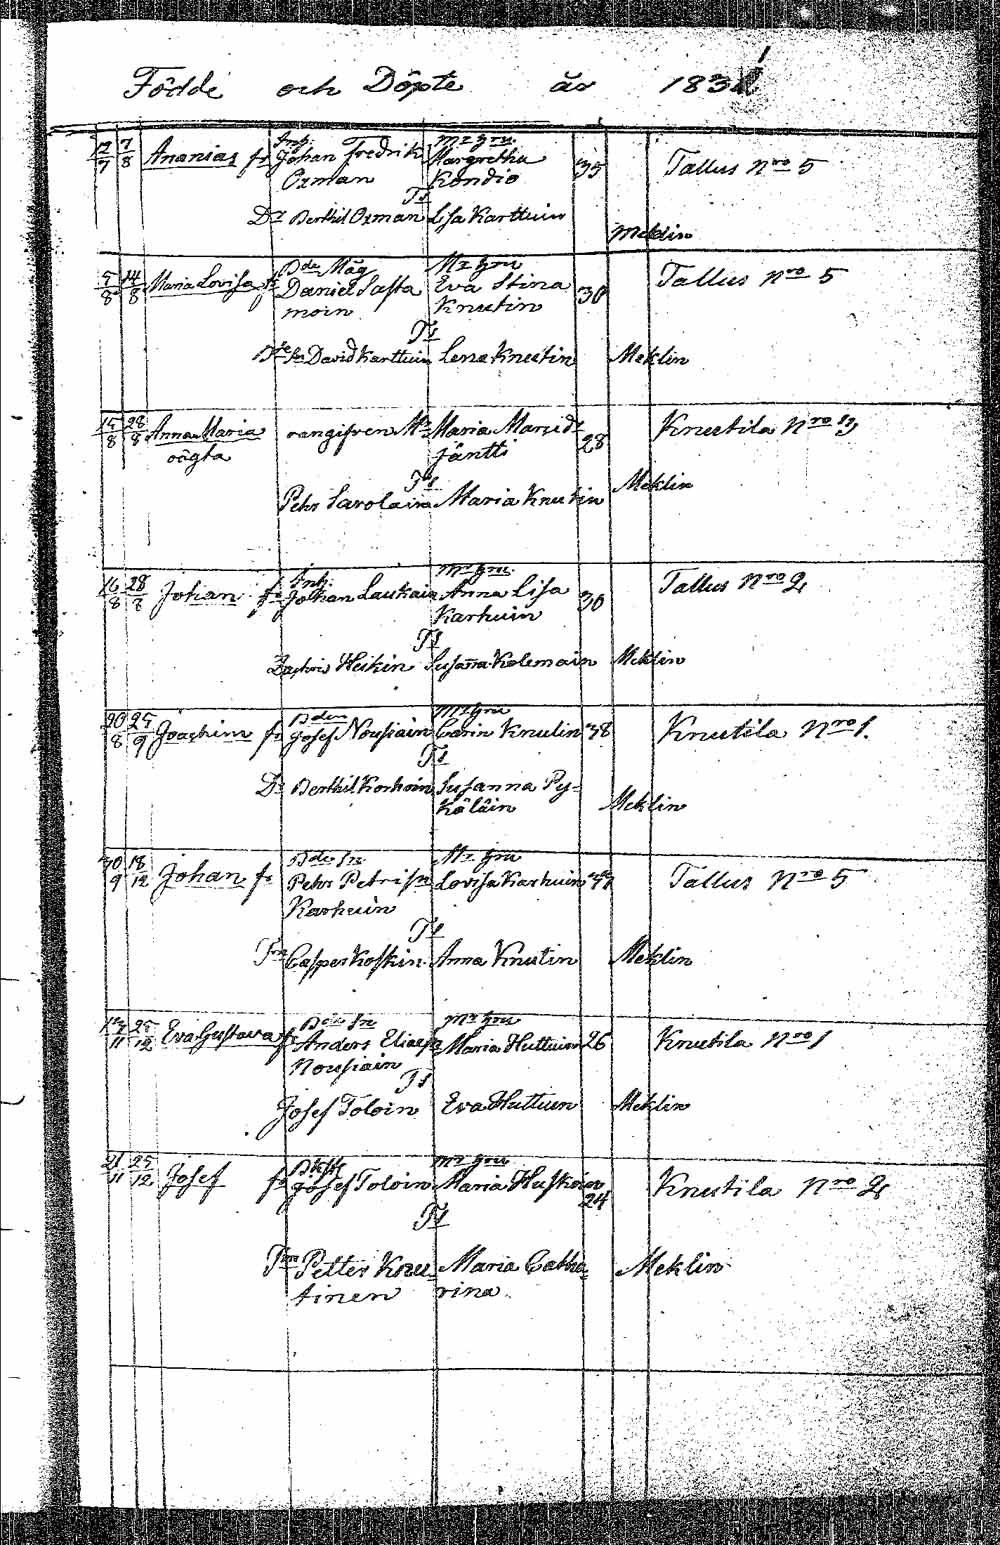 Födde och Döpte år 1831
12/7 7/8 Ananias fr Inh. Johan Fredrik Oxman Mr hru Margretha Kondio 35 Tallus Nro 5
Ts
Dr Berthil Oxman Lisa Karttuin Meklin
5/8 14/8 Maria Lovisa fr Bde Måg Daniel Sasta moin Mr hru Eva Stina Knutin 30 Tallus Nro 5
Ts
David Karttuin Lena Knutin Meklin
15/8 28/8 Anna Maria oägta Mr Maria Marsidr Jäntti 28 Knutila Nro
Ts
Pehr Savolain Maria Knutin Meklin
16/8 28/8 Johan fr Inh. Johan Laukain Mr hru Anna Lisa Karhuin 30 Tallus Nro 2
Ts
Heikin Susanna Kolemain Meklin
20/8 25/9 Joachim fr Bden Josef Nousiain Mr hru Carin Knutin 38 Knutila Nro 1.
Ts
Dr Berthil Korhoin Susanna Py-
käläin Meklin
30/9 18/12 Johan fr Bde sn Pehr Petrisn Karhuin Mr hru Lovisa Karhuin Tallus Nro 5
Ts
Casper Koskin Anna Knutin Meklin
25/12 Eva Gustava fr Bde sn Anders Eliass Nousiain Mr hru Maria Huttuin 26 Knutila Nro 1
Ts
Josef Toloin Eva Huttuin Meklin
21/11 25/12 Josef fr Josef Toloin Mr hru Maria Huskoin 24 Knutila Nro 2
Ts
Petter Knu- Maria Catha- Meklin
tinen rina